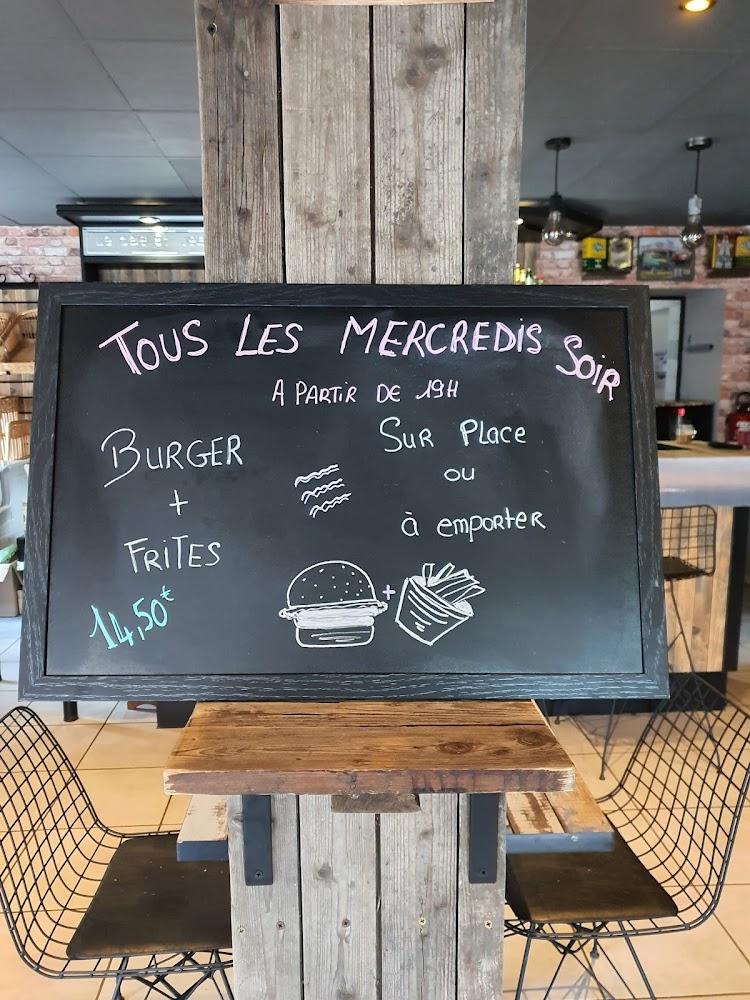 TOUS LES MERCREDIS SOIR
A PARTIR DE 19H
BURGER
+
FRITES
14,50€
SUR PLACE
OU
à emporter
+